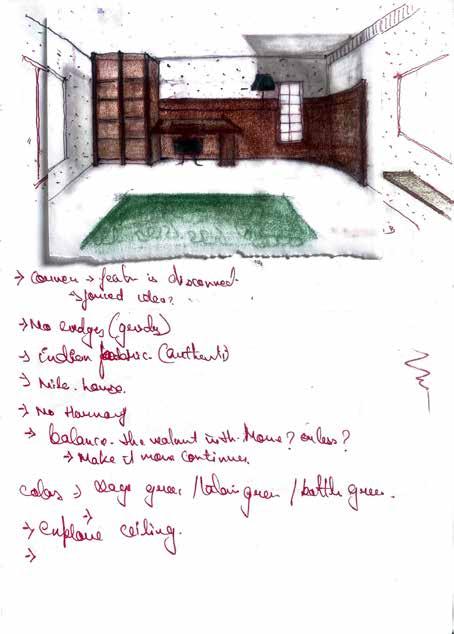 → Corner → is disconnect
→ joined idea?
→ No endges (gends)
→ indian (authenti)
→ Nile. house.
→ No Harmony
→ balance. the walnut with. More? or less?
→ Make it more continues
colors → sage green / / bottle green.
→
→ explore ceiling.
→